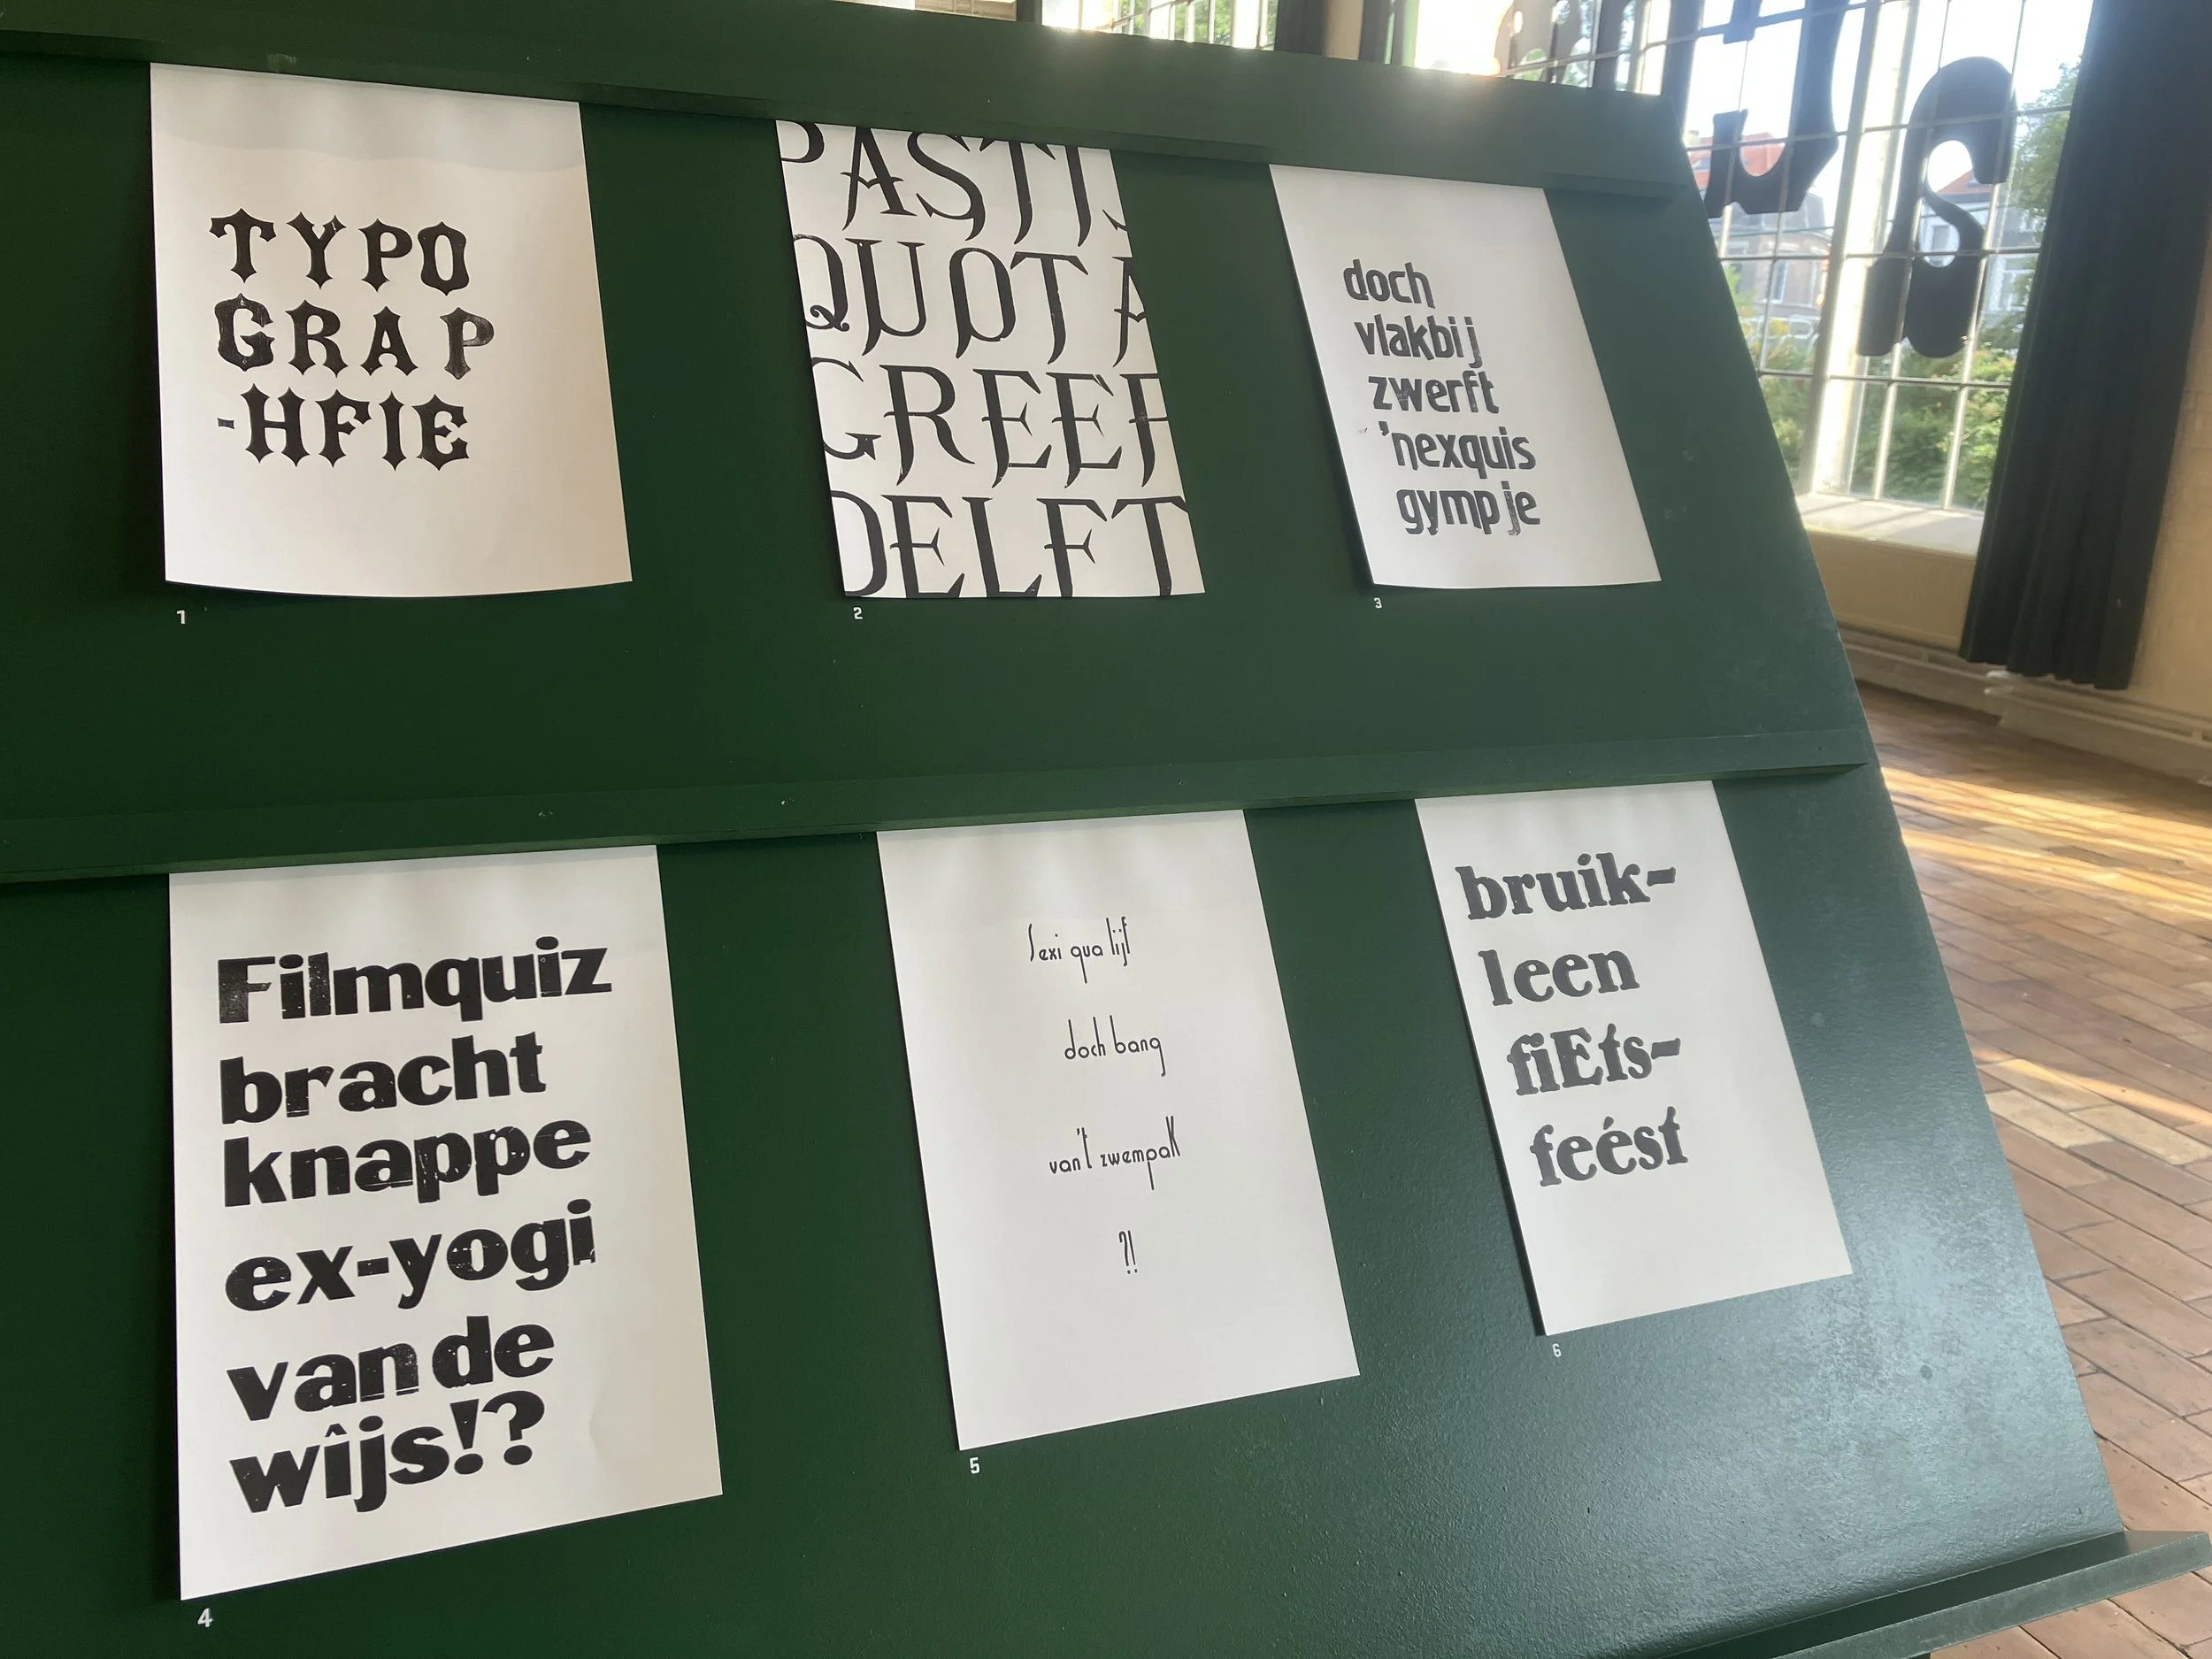 TYPO
GRAP
-HFIE
1
PASTIJ
QUOTA
GREEP
DELFT
2
doch
vlakbij
zwerft
'nexquis
gympje
3
Filmquiz
bracht
knappe
ex-yogi
van de
wîjs!?
4
sexi qua lijf
doch bang
van't zwempak
?!
5
bruik-
leen
fiEts-
feést
6